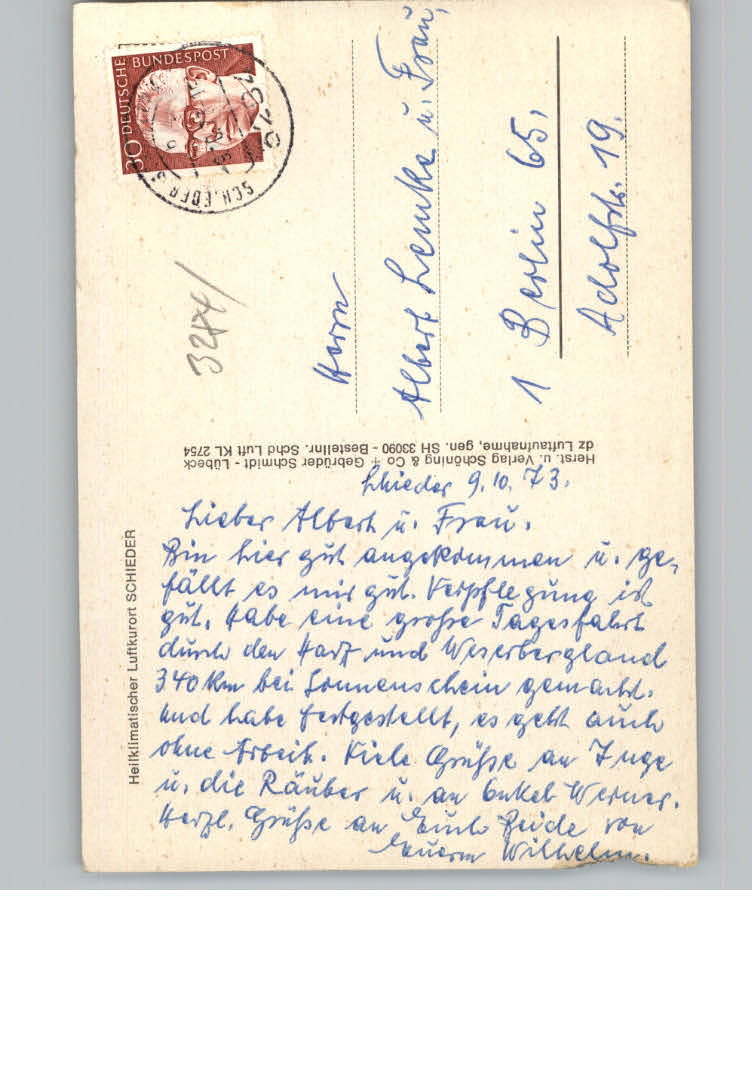 Heilklimatischer Luftkurort SCHIEDER
Schieder 9.10.73.
Lieber Albert u. Frau.
Bin hier gut angekommen u. ge-
fällt es mir gut. Verpflegung ist
gut. Habe eine große Tagesfahrt
durch den Harz und Weserbergland
340 km bei Sonnenschein gemacht.
und habe festgestellt, es geht auch
ohne Arbeit. Viele Grüße an Inge
u. die Räuber u. an Onkel Werner.
Herzl. Grüße an Euch Beide von
Euerm Wilhelm.
Herst. u. Verlag Schöning & Co + Gebrüder Schmidt - Lübeck
dz Luftaufnahme, gen. SH 33090 - Bestellnr. Schd Luft KL 2754
30 DEUTSCHE BUNDESPOST
SCHIEDER
Herrn
Albert Lemke u. Frau,
1 Berlin 65,
Adolfstr. 19.